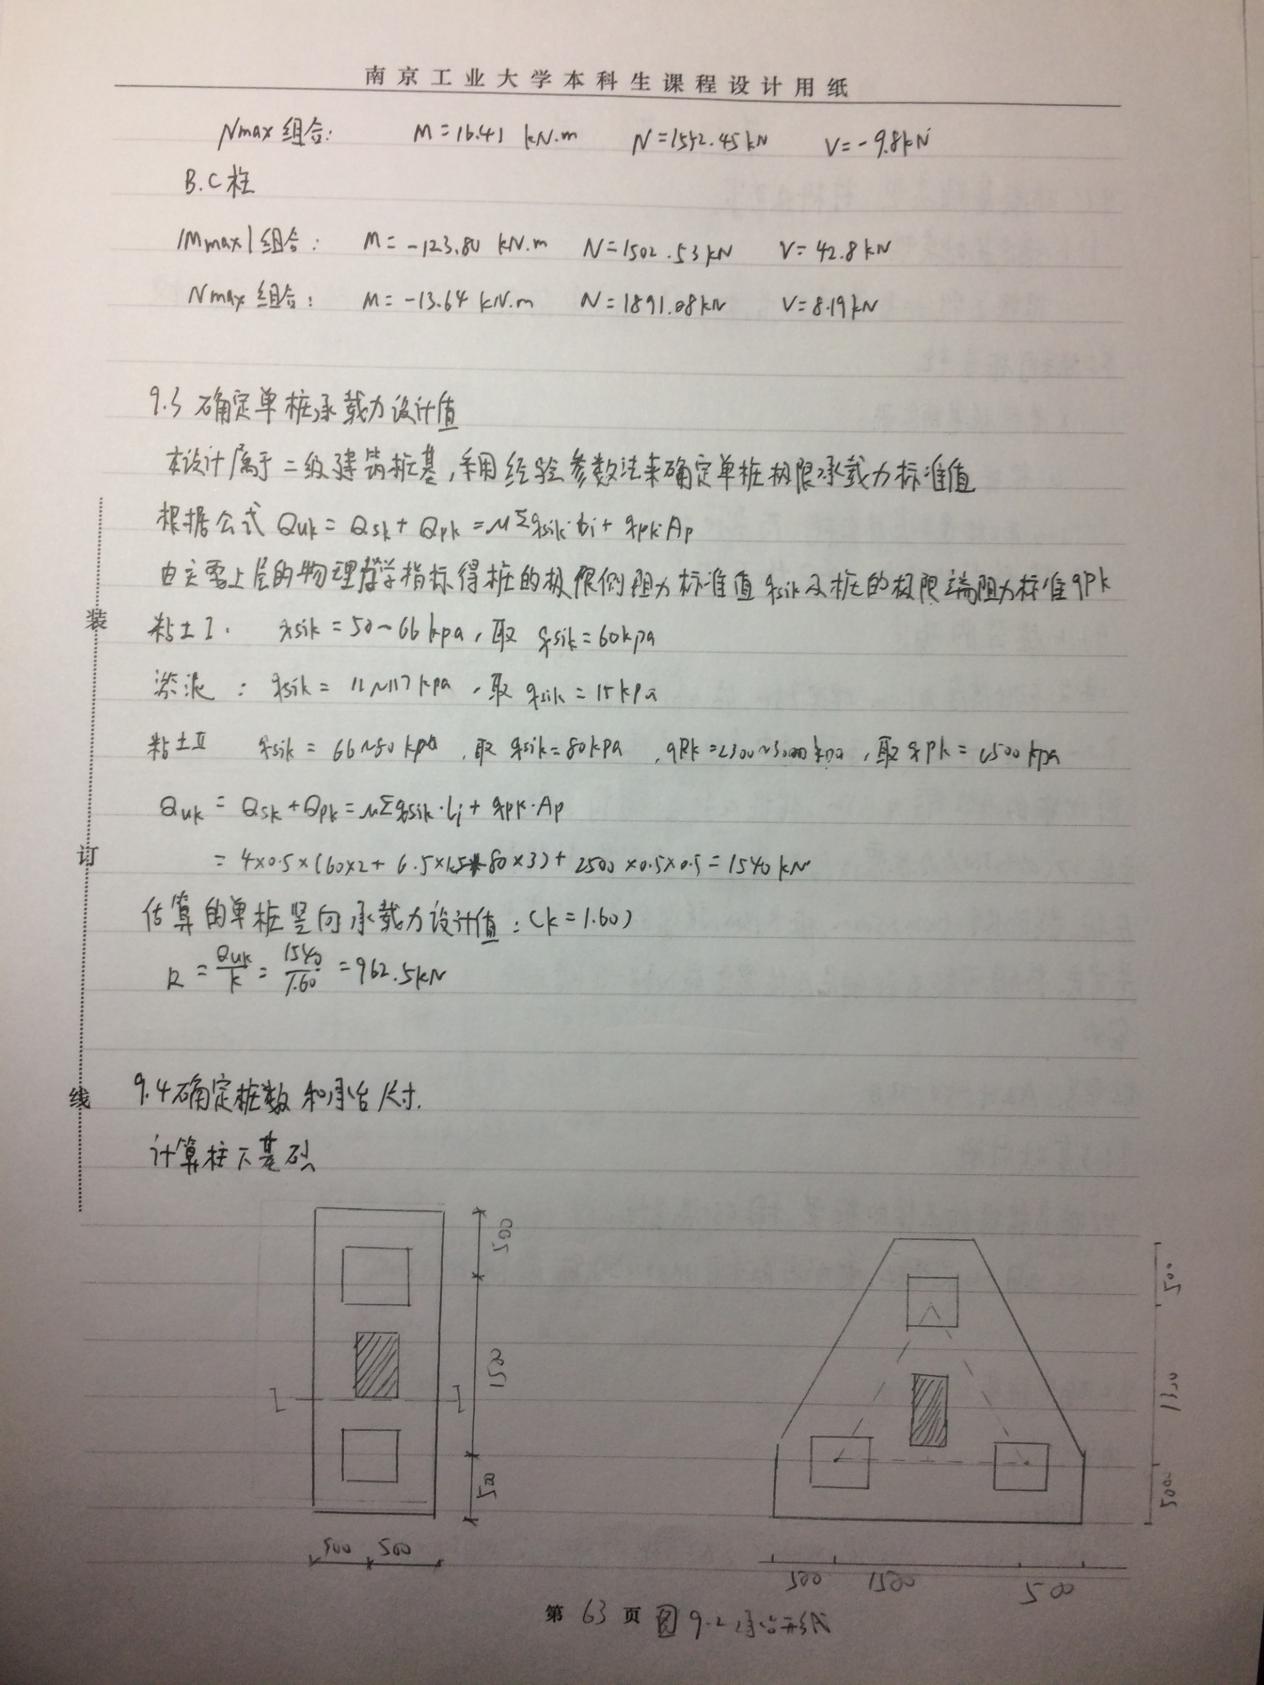 南京工业大学本科生课程设计用纸
Nmax组合: M=16.41 kN.m N=1552.45kN V=-9.8kN
B.C柱
|Mmax|组合: M=-123.80 kN.m N=1502.53kN V=42.8kN
Nmax组合: M=-13.64 kN.m N=1891.08kN V=8.19kN
9.3 确定单桩承载力设计值
本设计属于二级建筑桩基,采用经验参数法来确定单桩极限承载力标准值
根据公式 Quk = Qsk + Qpk = μΣqsik·Li + qpk·Ap
由主要土层的物理力学指标得桩的极限侧阻力标准值qsik及桩的极限端阻力标准qpk
粘土I. qsik = 50~66 kpa, 取 qsik=60kpa
淤泥: qsik = 11~17 kpa, 取 qsik = 15kpa
粘土II qsik = 66~80 kpa, 取 qsik=80kpa, qpk=2300~3000kpa, 取 qpk = 2500kpa
Quk = Qsk+Qpk=μΣqsik·Li + qpk·Ap
= 4×0.5×(60×2+6.5×15+80×3)+2500×0.5×0.5=1540kN
估算的单桩竖向承载力设计值:(k=1.60)
R = Quk/k = 1540/1.60 = 962.5kN
装
订
线
9.4 确定桩数和承台尺寸.
计算柱下基础
500
1500
500
I I
500 500
500
500
500 1500 500
第 63 页 图9.2 承台形式